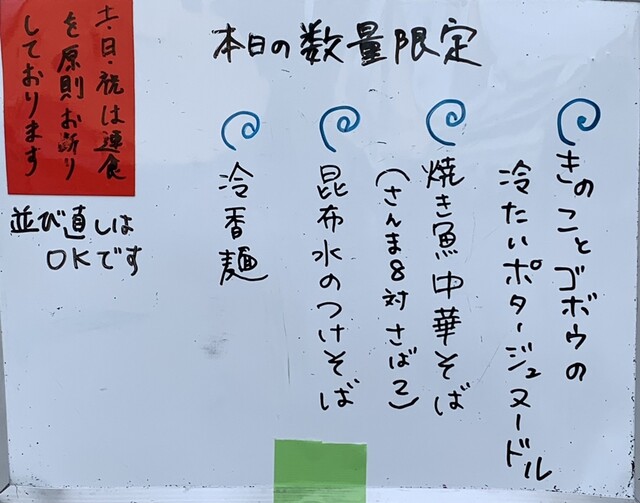 本日の数量限定
きのことゴボウの
冷たいポタージュヌードル
焼き魚中華そば
(さんま8対さば2)
昆布水のつけそば
冷香麺
土・日・祝は連食
を原則お断り
しております
並び直しは
OKです